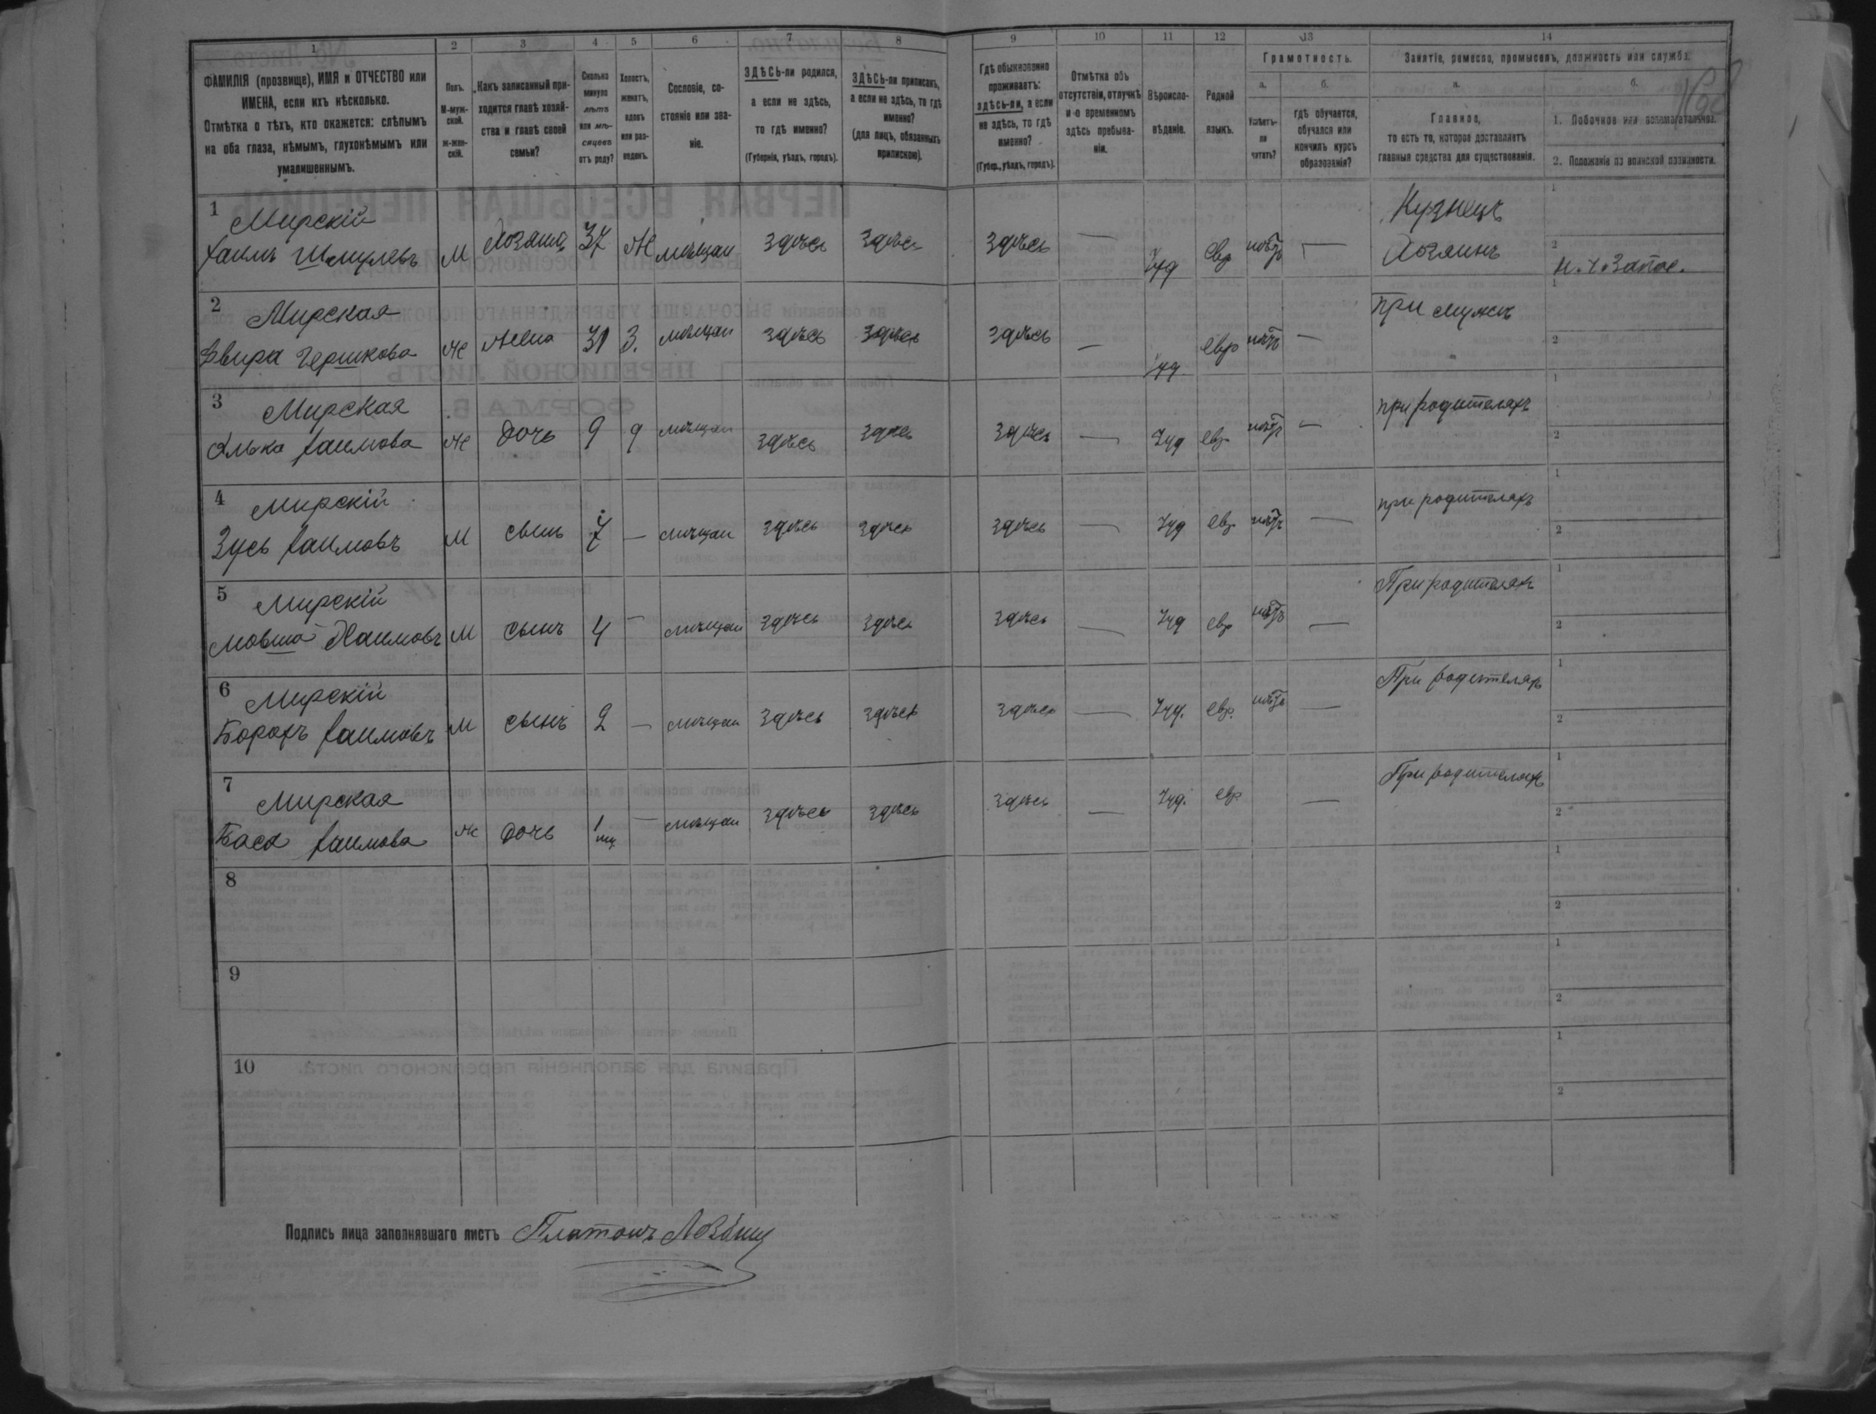 1 2 3 4 5 6 7 8 9 10 11 12 13 14
ФАМИЛІЯ (прозвище), ИМЯ и ОТЧЕСТВО или ИМЕНА, если ихъ нѣсколько.
Отмѣтка о тѣхъ, кто окажется: слѣпымъ на оба глаза, нѣмымъ, глухонѣмымъ или умалишеннымъ.
Полъ. М-муж-ской. ж-жен-скій.
Какъ записанный при-ходится главѣ хозяй-ства и главѣ своей семьи?
Сколько минуло лѣтъ или мѣ-сяцевъ отъ роду?
Холостъ, женатъ, вдовъ или раз-веденъ.
Сословіе, со-стояніе или зва-ніе.
ЗДѢСЬ-ли родился, а если не здѣсь, то гдѣ именно? (Губернія, уѣздъ, городъ).
ЗДѢСЬ-ли приписанъ, а если не здѣсь, то гдѣ именно? (для лицъ, обязанныхъ припискою).
Гдѣ обыкновенно проживаетъ: здѣсь-ли, а если не здѣсь, то гдѣ именно? (Губер., уѣздъ, городъ).
Отмѣтка объ отсутствіи, отлучкѣ и о временномъ здѣсь пребыва-ніи.
Вѣроиспо-вѣданіе.
Родной языкъ.
Грамотность.
а. Умѣетъ-ли читать?
б. гдѣ обучается, обучался или кончилъ курсъ образованія?
Занятіе, ремесло, промыселъ, должность или служба.
а. Главное, то есть то, которое доставляетъ главныя средства для существованія.
б. 1. Побочное или вспомогательное.
2. Положеніе по воинской повинности.
1 Мирскій Кузнецъ 1
Хаимъ Шмулевъ М Хозяинъ 37 Ж мѣщан здѣсь здѣсь здѣсь — Іуд евр нѣтъ — Хозяинъ 2
2 Мирская при мужѣ 1
Двира Гершкова Ж Жена 31 З. мѣщан здѣсь здѣсь здѣсь — Іуд евр нѣтъ — 2
3 Мирская при родителяхъ 1
Элька Хаимова Ж дочь 9 д мѣщан здѣсь здѣсь здѣсь — Іуд евр нѣтъ — 2
4 Мирскій при родителяхъ 1
Зусь Хаимовъ М сынъ 7 — мѣщан здѣсь здѣсь здѣсь — Іуд евр нѣтъ — 2
5 Мирскій При родителяхъ 1
Мовша Хаимовъ М сынъ 4 — мѣщан здѣсь здѣсь здѣсь — Іуд евр нѣтъ — 2
6 Мирскій При родителяхъ 1
Борохъ Хаимовъ М сынъ 2 — мѣщан здѣсь здѣсь здѣсь — Іуд. евр. нѣтъ — 2
7 Мирская При родителяхъ 1
Бася Хаимова Ж дочь 1 мц — мѣщан здѣсь здѣсь здѣсь — Іуд. евр — 2
8 1
2
9 1
2
10 1
2
Подпись лица заполнявшаго листъ Платонъ